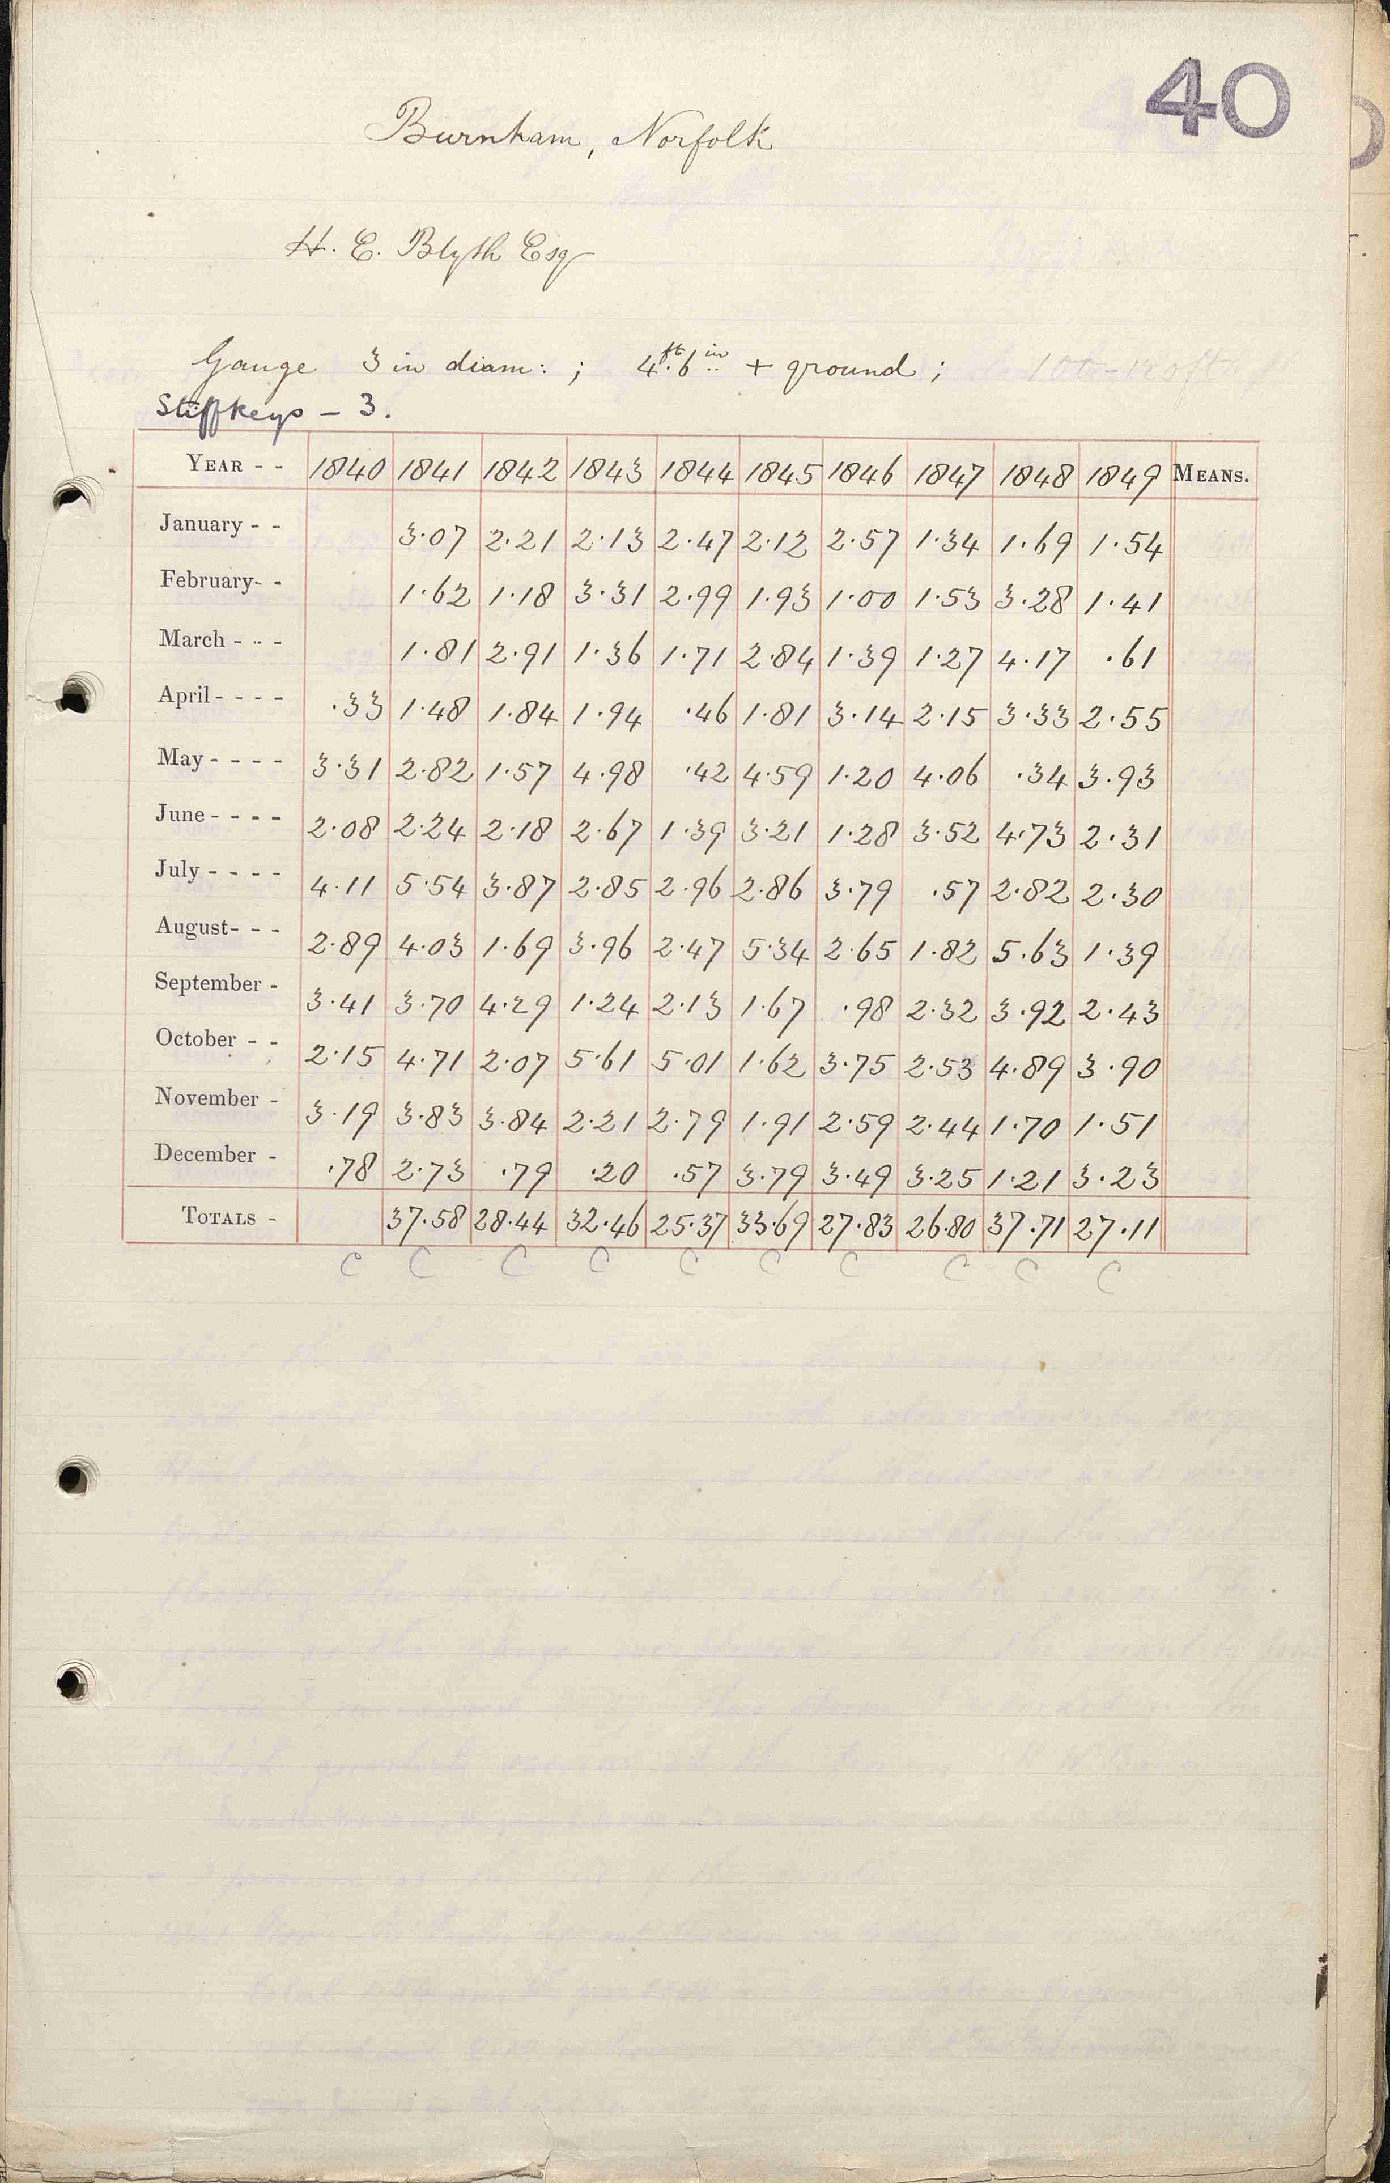 40
Burnham, Norfolk
H. E. Blyth Esq
Gauge 3 in diam: ; 4ft. 6in + ground ; 100-120ft
Stiffkeys - 3.
YEAR - - 1840 1841 1842 1843 1844 1845 1846 1847 1848 1849 MEANS.
January - - 3.07 2.21 2.13 2.47 2.12 2.57 1.34 1.69 1.54
February- - 1.62 1.18 3.31 2.99 1.93 1.00 1.53 3.28 1.41
March - - - 1.81 2.91 1.36 1.71 2.84 1.39 1.27 4.17 .61
April - - - - .33 1.48 1.84 1.94 .46 1.81 3.14 2.15 3.33 2.55
May - - - - 3.31 2.82 1.57 4.98 .42 4.59 1.20 4.06 .34 3.93
June - - - - 2.08 2.24 2.18 2.67 1.39 3.21 1.28 3.52 4.73 2.31
July - - - - 4.11 5.54 3.87 2.85 2.96 2.86 3.79 .57 2.82 2.30
August- - - 2.89 4.03 1.69 3.96 2.47 5.34 2.65 1.82 5.63 1.39
September - 3.41 3.70 4.29 1.24 2.13 1.67 .98 2.32 3.92 2.43
October - - 2.15 4.71 2.07 5.61 5.01 1.62 3.75 2.53 4.89 3.90
November - 3.19 3.83 3.84 2.21 2.79 1.91 2.59 2.44 1.70 1.51
December - .78 2.73 .79 .20 .57 3.79 3.49 3.25 1.21 3.23
TOTALS - 37.58 28.44 32.46 25.37 33.69 27.83 26.80 37.71 27.11
C C C C C C C C C C